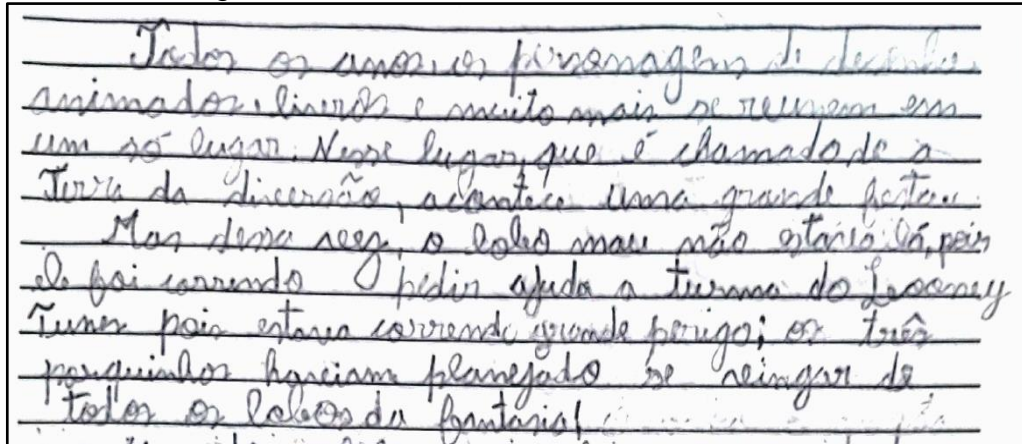 Todos os anos, os personagens de desenho
animados, livros e muito mais se reunem em
um só lugar. Nesse lugar, que é chamado de a
Terra da diversão, acontece uma grande festa.
Mas dessa vez, o lobo mau não estava lá, pois
ele foi correndo pedir ajuda a turma do Looney
Tunes pois estava correndo grande perigo; os três
porquinhos haviam planejado se vingar de
todos os lobos da fantasia!